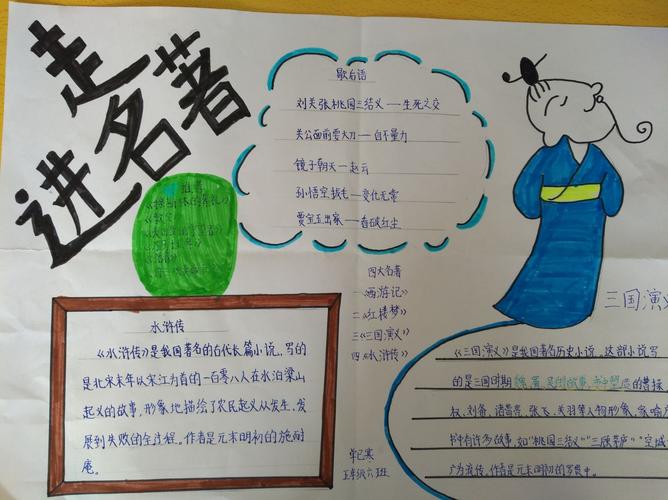 走进名著
歇后语
刘关张桃园三结义——生死之交
关公面前耍大刀——自不量力
镜子朝天——赵云
孙悟空拔毛——变化无常
贾宝玉出家——看破红尘
四大名著
一《西游记》
二《红楼梦》
三《三国演义》
四《水浒传》
水浒传
《水浒传》是我国著名的古代长篇小说。写的
是北宋末年以宋江为首的一百零八人在水泊梁山
起义的故事,形象地描绘了农民起义从发生、发
展到失败的全过程。作者是元末明初的施耐
庵。
三国演义
《三国演义》是我国著名历史小说,这部小说写
的是三国时期魏、蜀、吴的故事,书中塑造的曹操、
权、刘备、诸葛亮、张飞、关羽等人物形象,家喻户
书中有许多故事,如“桃园三结义”“三顾茅庐”“空城
广为流传,作者是元末明初的罗贯中。
五年级六班